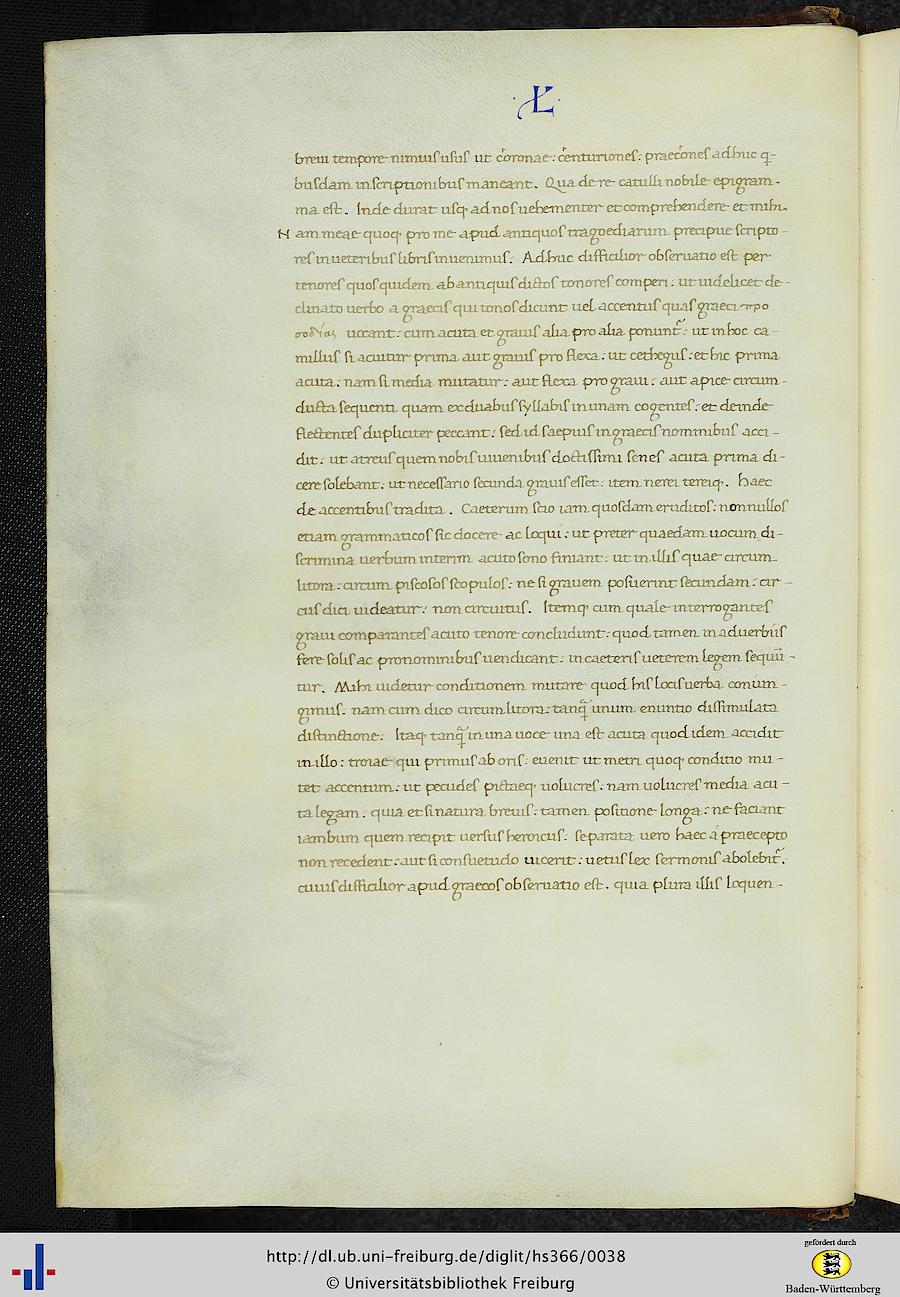 ·L·
breui tempore nimius usus ut c̓oronae: c̓enturiones: praec̓ones adhuc q-
busdam inscriptionibus maneant. Qua de re catulli nobile epigram-
ma est. Inde durat usq; ad nos uehementer et comprehendere et mihi.
Nam meae quoq; pro me apud antiquos tragoediarum precipue scripto-
res in ueteribus libris inuenimus. Adhuc difficilior obseruatio est per
tenores quos quidem ab antiquis dictos tonores comperi: ut uidelicet de-
clinato uerbo a graecis qui tonos dicunt uel accentus quas graeci προ
σοδίας uocant: cum acuta et grauis alia pro alia ponunt̃: ut in hoc ca-
millus si acuitur prima aut grauis pro flexa: ut cethegus: et hic prima
acuta: nam si media mutatur: aut flexa pro graui: aut apice circum-
ducta sequenti quam ex duabus syllabis in unam cogentes: et deinde
flectentes dupliciter peccant: sed id saepius in graecis nominibus acci-
dit: ut atreus quem nobis iuuenibus doctissimi senes acuta prima di-
cere solebant: ut necessario secunda grauis esset: item nerei tereiq;. haec
de accentibus tradita. Caeterum scio iam quosdam eruditos: nonnullos
etiam grammaticos sic docere ac loqui: ut preter quaedam uocum di-
scrimina uerbum interim acuto sono finiant: ut in illis quae circum
litora: circum piscosos scopulos: ne si grauem posuerint secundam: cir-
cus dici uideatur: non circuitus. Itemq; cum quale interrogantes
graui comparantes acuto tenore concludunt: quod tamen in aduerbiis
fere solis ac pronominibus uendicant: in caeteris ueterem legem sequū-
tur. Mihi uidetur conditionem mutare quod his locis uerba conium-
gimus. nam cum dico circum litora: tanq̃ unum enuntio dissimulata
distinctione: Itaq; tanq̃ in una uoce una est acuta quod idem accidit
in illo: troiae qui primus ab oris: euenit ut metri quoq; conditio mu-
tet accentum: ut pecudes pictaeq; uolucres: nam uolucres media acu-
ta legam: quia et si natura breuis: tamen positione longa: ne faciant
iambum quem recipit uersus heroicus: separata uero haec á praecepto
non recedent: aut si consuetudo uicerit: uetus lex sermonis abolebit̃:
cuius difficilior apud graecos obseruatio est. quia plura illis loquen-
http://dl.ub.uni-freiburg.de/diglit/hs366/0038
© Universitätsbibliothek Freiburg
gefördert durch
Baden-Württemberg